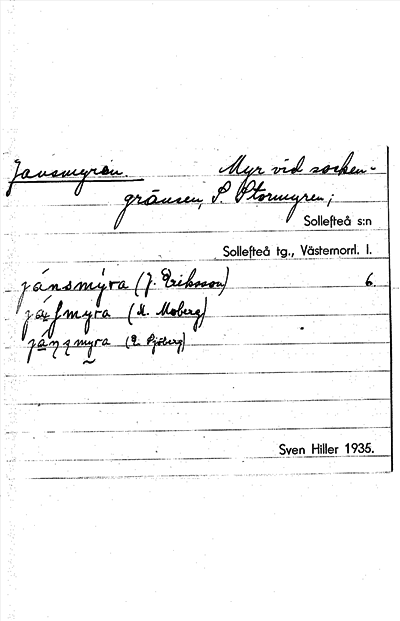 Jansmyran. Myr vid socken-
gränsen, S. Stormyren;
Sollefteå s:n
Sollefteå tg., Västernorrl. l.
jánsmýra (J. Eriksson) 6.
myra (M. Moberg)
myra (E. Sjöberg)
Sven Hiller 1935.